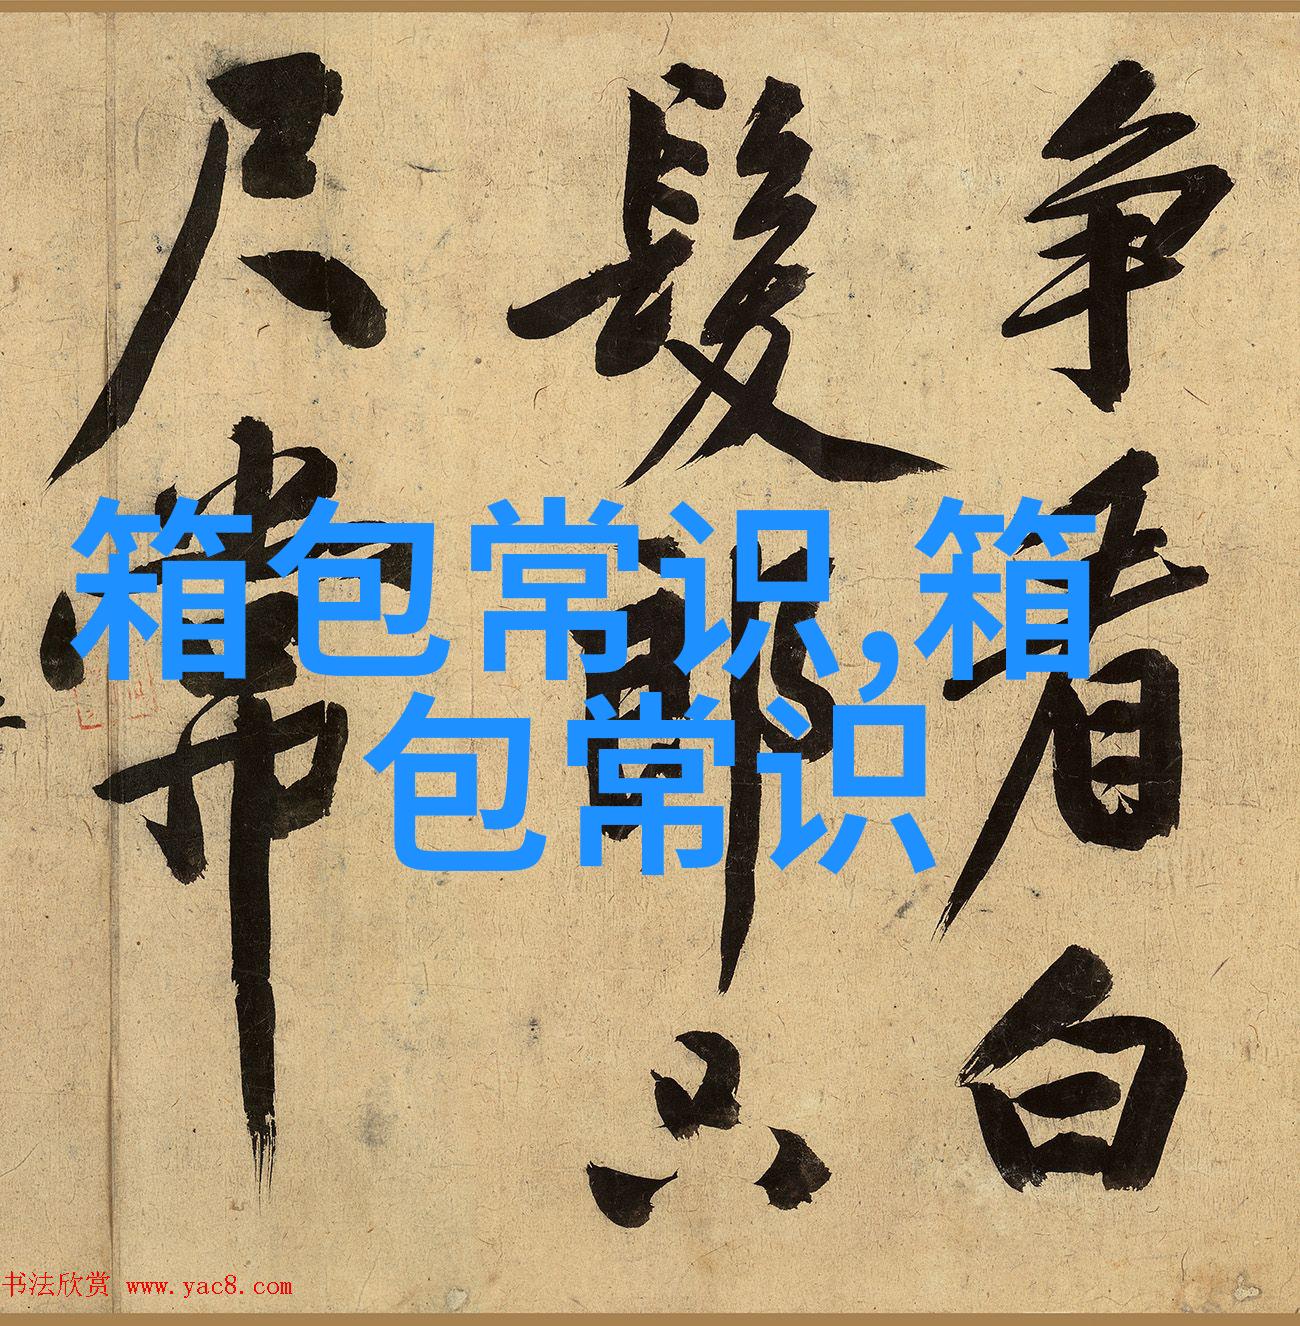 争看白
髮郎只
尺常
箱包常识,箱
包常识
书法欣赏 www.yac8.com